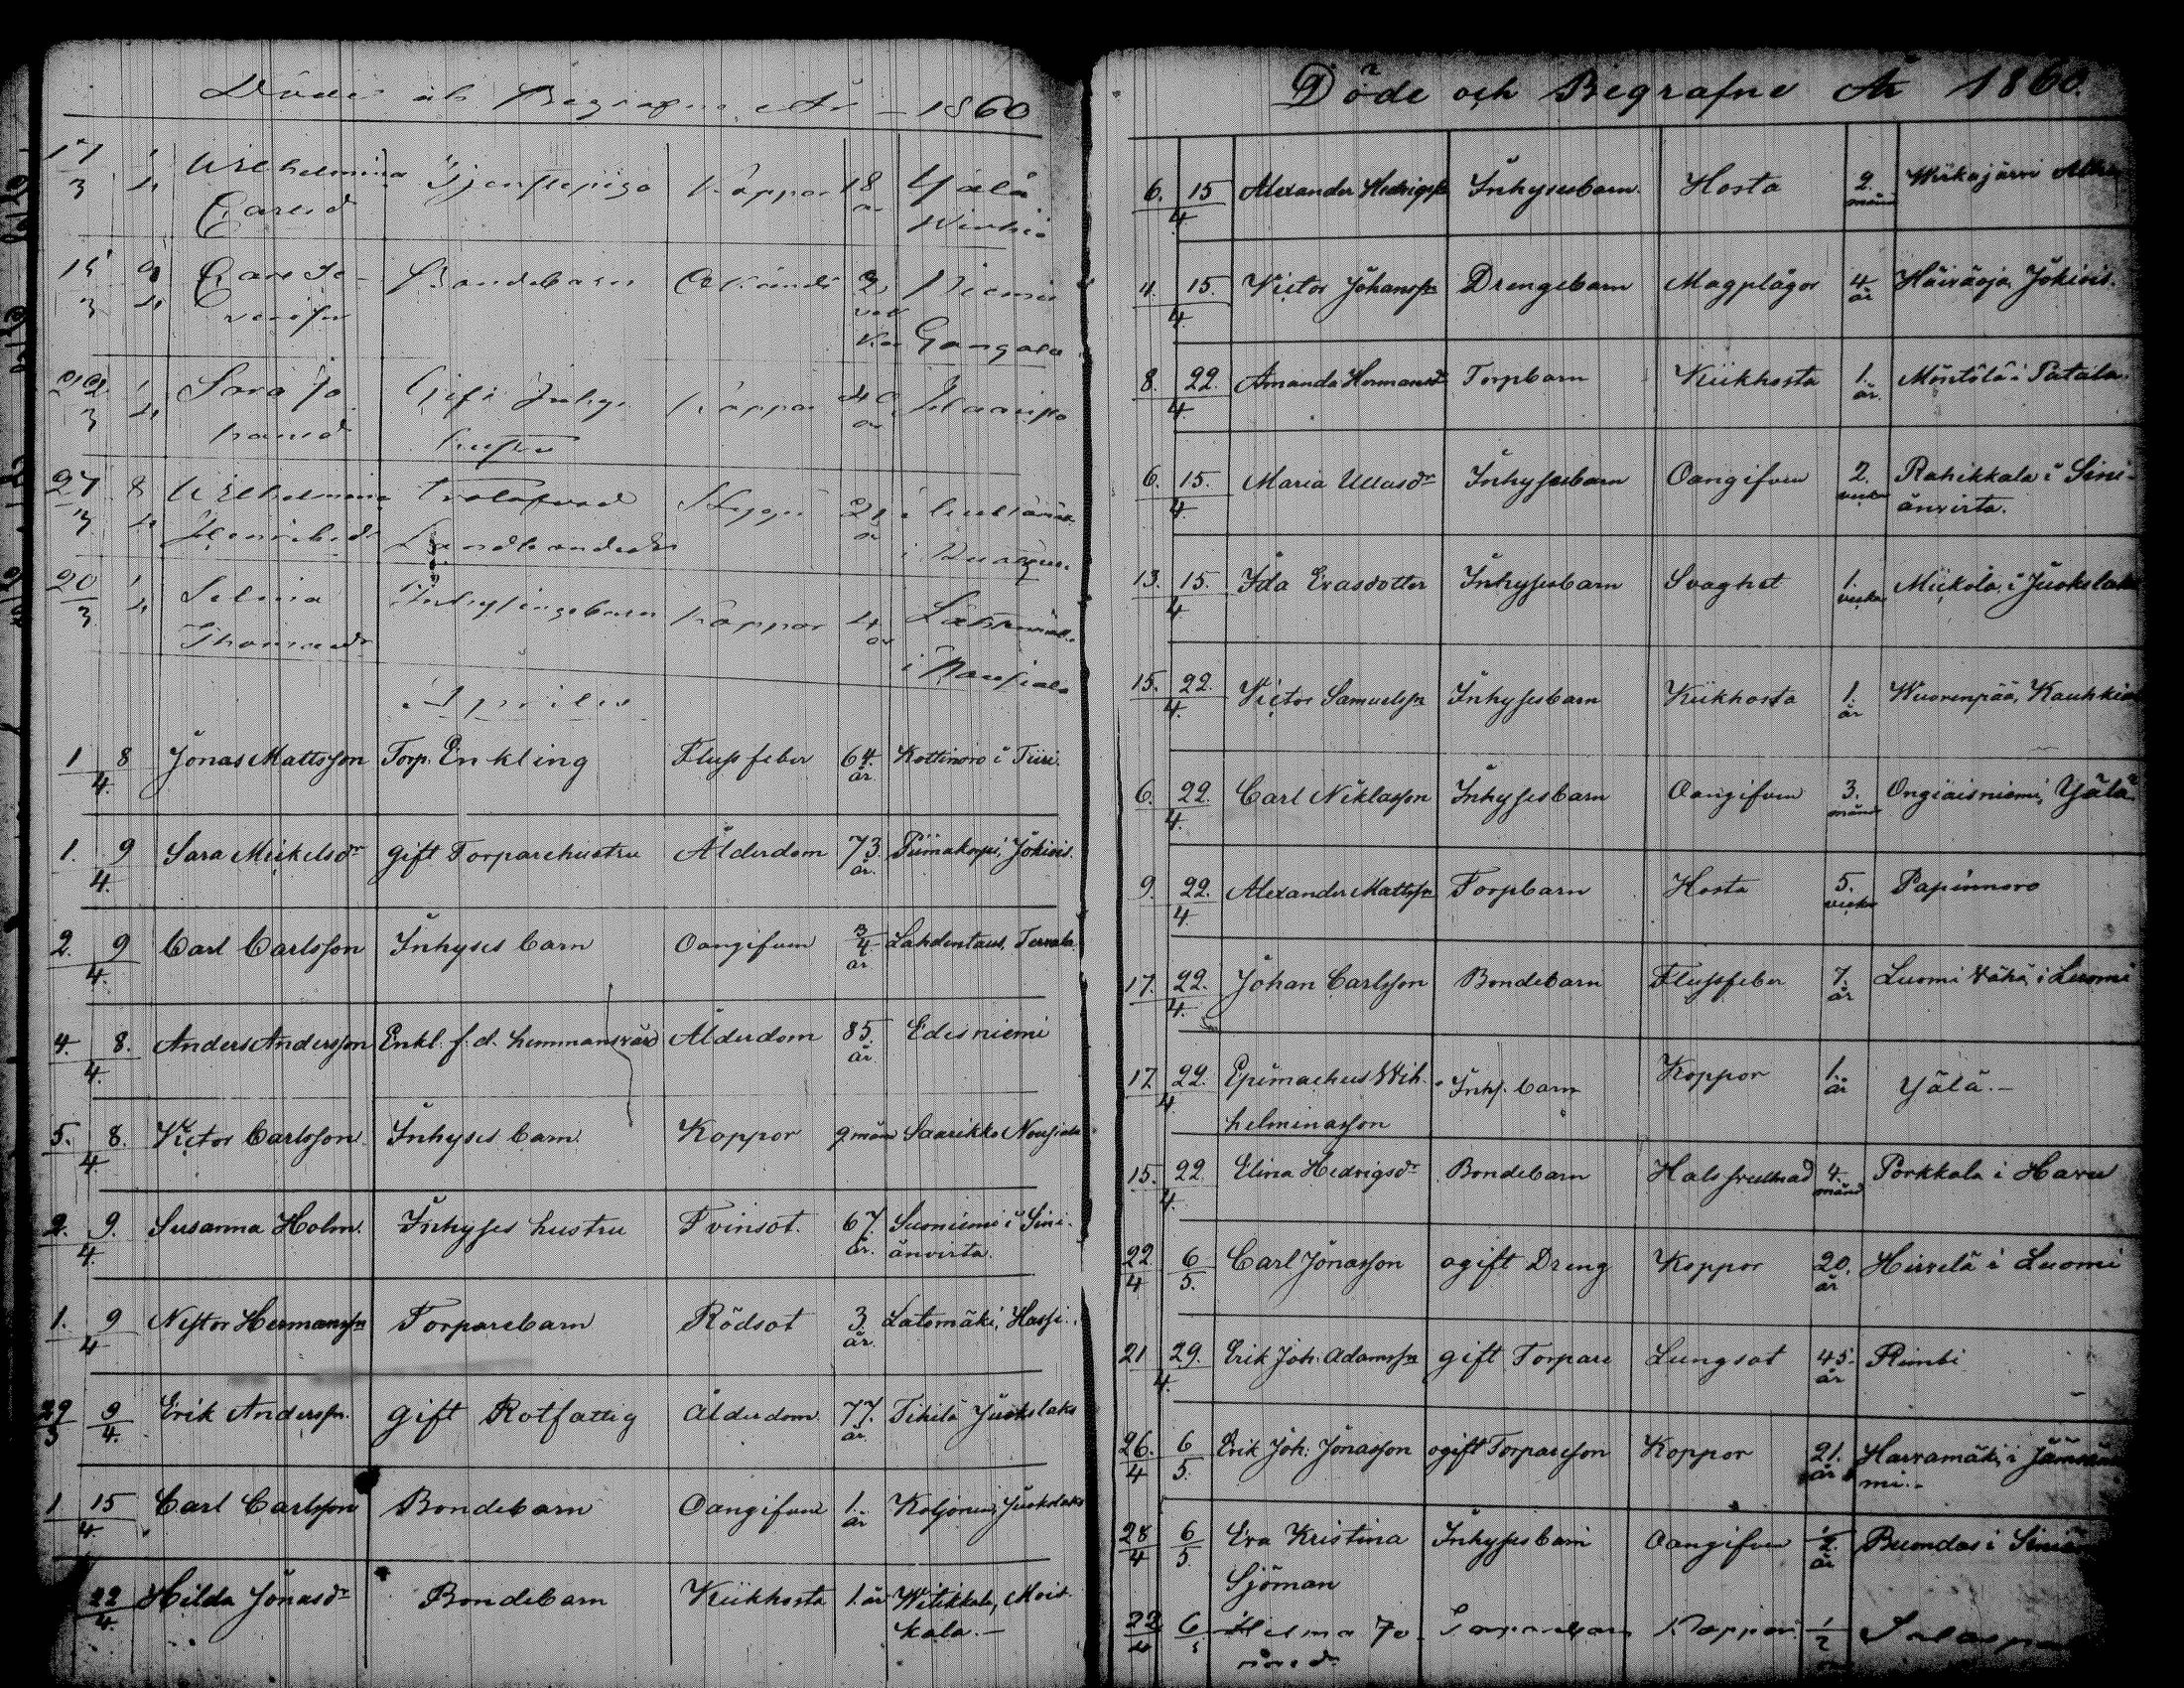 Döde och Begrafne År 1860
17/3 1/4 Wilhelmina Carlsd Tjenstepiga Koppor 18 år Yälä
15/3 9/4 Bondebarn Okänd Niemi
22/3 1/4 Sara Johansd Gift Inhys. hustru Koppor 40 år
27/3 8/4 Wilhelmina Henriksdr
20/3 1/4 Selma Thomasdr Inhysingebarn Koppor 4 år i Nousiala
Aprilis
1 8/4. Jonas Mattsson Torp. Enkling Flussfeber 64 år. Kottinoro i Tiiri.
1. 9/4. Sara Mickelsdr gift Torparehustru Ålderdom 73 år. Piimakorpi, Jokiois.
2. 9/4. Carl Carlsson Inhyses barn Oangifven 3/4 år Lahdentaus, Tervala
4. 8./4. Anders Andersson Enkl. f.d. hemmansvärd Ålderdom 85. år. Edesniemi
5. 8./4. Victor Carlsson Inhyses barn Koppor 9 mån Saarikko Nousiala
2. 9./4. Susanna Holm. Inhyses hustru Tvinsot. 67. år. Suoniemi i Sini-
änvirta.
1. 9/4 Nestor Hermanssn Torparebarn Rödsot 3. år. Latomäki, Hassi.
29/3 9/4. Erik Anderssn. gift Rotfattig Ålderdom 77. år. Tihilä Juokslaks
1 15/4. Carl Carlsson Bondebarn Oangifven 1. år Koljonen, Juokslaks
22/4. Hilda Jonasdr Bondebarn Kikhosta 1. år Witikkala, Mois-
kala.—
Döde och Begrafne År 1860.
6. 15/4 Alexander Hedvigssn Inhysesbarn. Hosta 2. månd
4. 15./4. Victor Johanssn Drengebarn Magplågor 4 år Häiväoja, Jokiois.
8. 22./4. Amanda Hermansdr Torpbarn Kikhosta 1. år. Möntölä i Patala.
6. 15./4. Maria Ullasdr Inhysesbarn Oangifven 2. veckor Rahikkala i Sini-
änvirta.
13. 15./4 Ida Evasdotter Inhysesbarn Svaghet 1. vecka Mickola, i Juokslaks
15. 22./4. Victor Samuelssn Inhysesbarn Kikhosta 1. år Wuorenpää, Kauhkiala
6. 22./4. Carl Niklasson Inhysesbarn Oangifven 3. månd Ongiaisniemi, Yälä
9. 22./4. Alexander Mattssn Torpbarn Hosta 5. veckor Papinnoro
17. 22./4. Johan Carlsson Bondebarn Flussfeber 7. år Luomi Vähä i Luomi
17 22./4. Epimachus Wil-
helminasson Inhs. barn Koppor 1. år Yälä.—
15. 22./4. Elina Hedvigsdr Bondebarn Hals svullnad 4. månd Porkkala i Havu
22/4 6/5. Carl Jonasson ogift Dreng Koppor 20. år Hirvelä i Luomi
21 29./4. Erik Joh: Adamssn gift Torpare Lungsot 45. år Rimbi
26./4 6/5. Erik Joh: Jonasson ogift Torpareson Koppor 21. år Harramäki, i Jämsänie-
mi.—
28/4 6/5. Eva Kristina Sjöman Inhyses barn Oangifven 1/2. år
22/4 6/5 Koppor 1/2